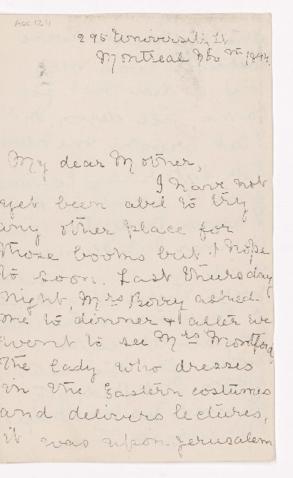 295 University St
Montreal Nov
My dear Mother,
I have not
yet been abel to try
any other place for
those books but I hope
to soon. Last Thursday
night Mrs asked
me to dinner & after we
went to see Mrs Montford
the lady who dresses
in the Eastern costumes
and delivers lectures,
it was upon Jerusalem